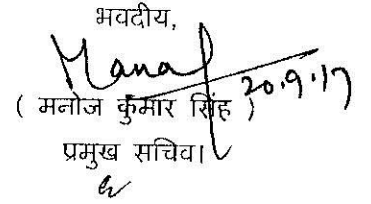 भवदीय,
Manoj 20.9.17
( मनोज कुमार सिंह )
प्रमुख सचिव।